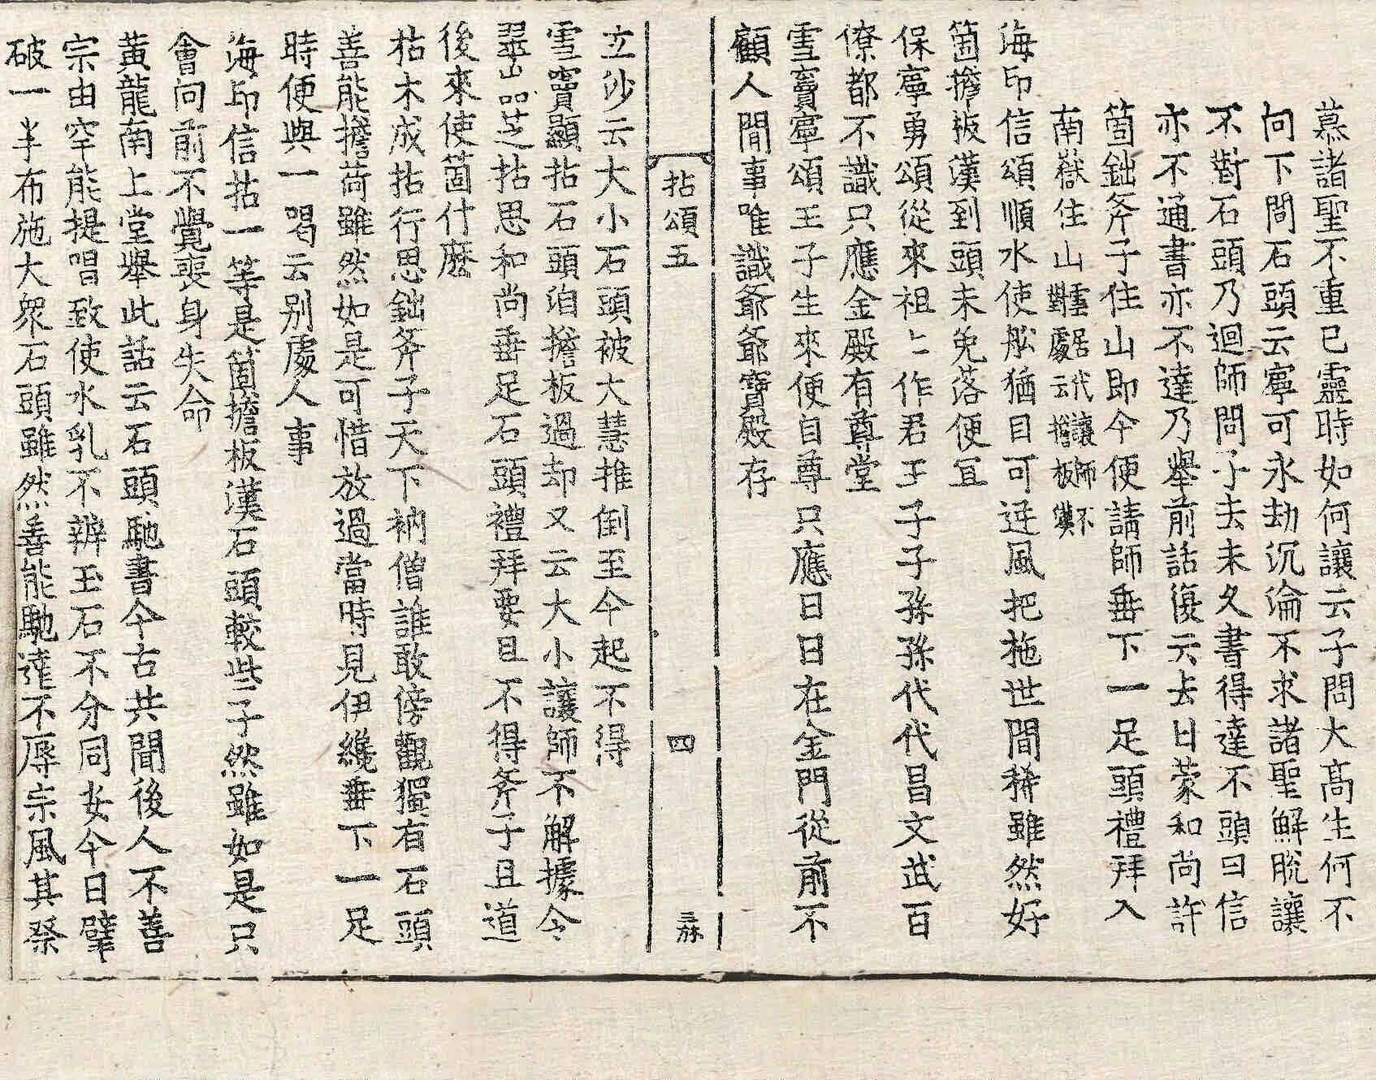 慕諸聖不重己靈時如何讓云子問大高生何不
向下問石頭云寧可永劫沉淪不求諸聖解脫讓
不對石頭乃迴師問子去未久書得達不頭曰信
亦不通書亦不達乃舉前話復云去日蒙和尚許
箇鈯斧子住山即今便請師垂下一足頭禮拜入
南嶽住山雲居代讓師不
對處云擔板漢
海印信頌順水使舩猶自可逆風把拖世間稀雖然好
箇擔板漢到頭未免落便冝
保寧勇頌從來祖〻作君王子子孫孫代代昌文武百
僚都不識只應金殿有尊堂
雪竇寧頌王子生來便自尊只應日日在金門從前不
顧人間事唯識爺爺寶殿存
拈頌五 四 三妳
立沙云大小石頭被大慧推倒至今起不得
雪竇顯拈石頭洎擔板過却又云大小讓師不解據令
翠嵓芝拈思和尚垂足石頭禮拜要且不得斧子且道
後來使箇什麽
枯木成拈行思鈯斧子天下衲僧誰敢傍觀獨有石頭
善能擔荷雖然如是可惜放過當時見伊纔垂下一足
時便與一喝云別處人事
海印信拈一等是箇擔板漢石頭較些子然雖如是只
會向前不覺喪身失命
黃龍南上堂舉此話云石頭馳書今古共聞後人不善
宗由罕能提唱致使水乳不辨玉石不分同安今日擘
破一半布施大衆石頭雖然善能馳達不辱宗風其祭